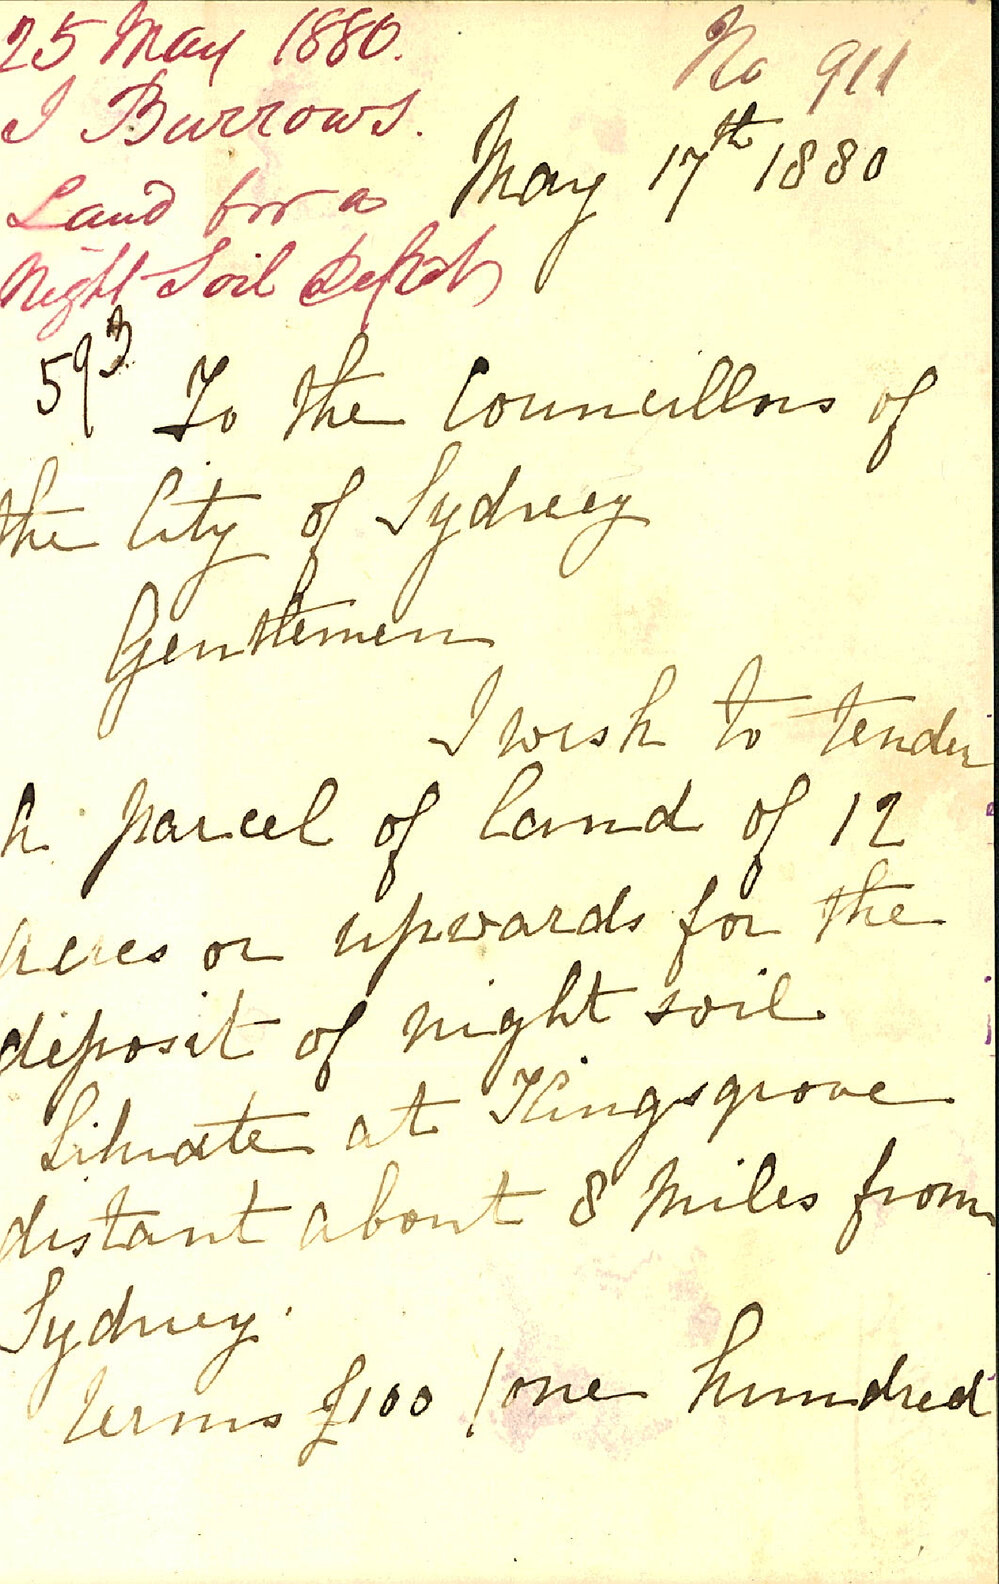 25 May 1880.
No 911
J Burrows.
May 17th 1880
Land for a
Night Soil Depôt
593
To the Councillors of
the City of Sydney
Gentlemen
I wish to tender
a parcel of land of 12
acres or upwards for the
deposit of night soil
Situate at Kingsgrove
distant about 8 miles from
Sydney.
Terms £100 (one hundred